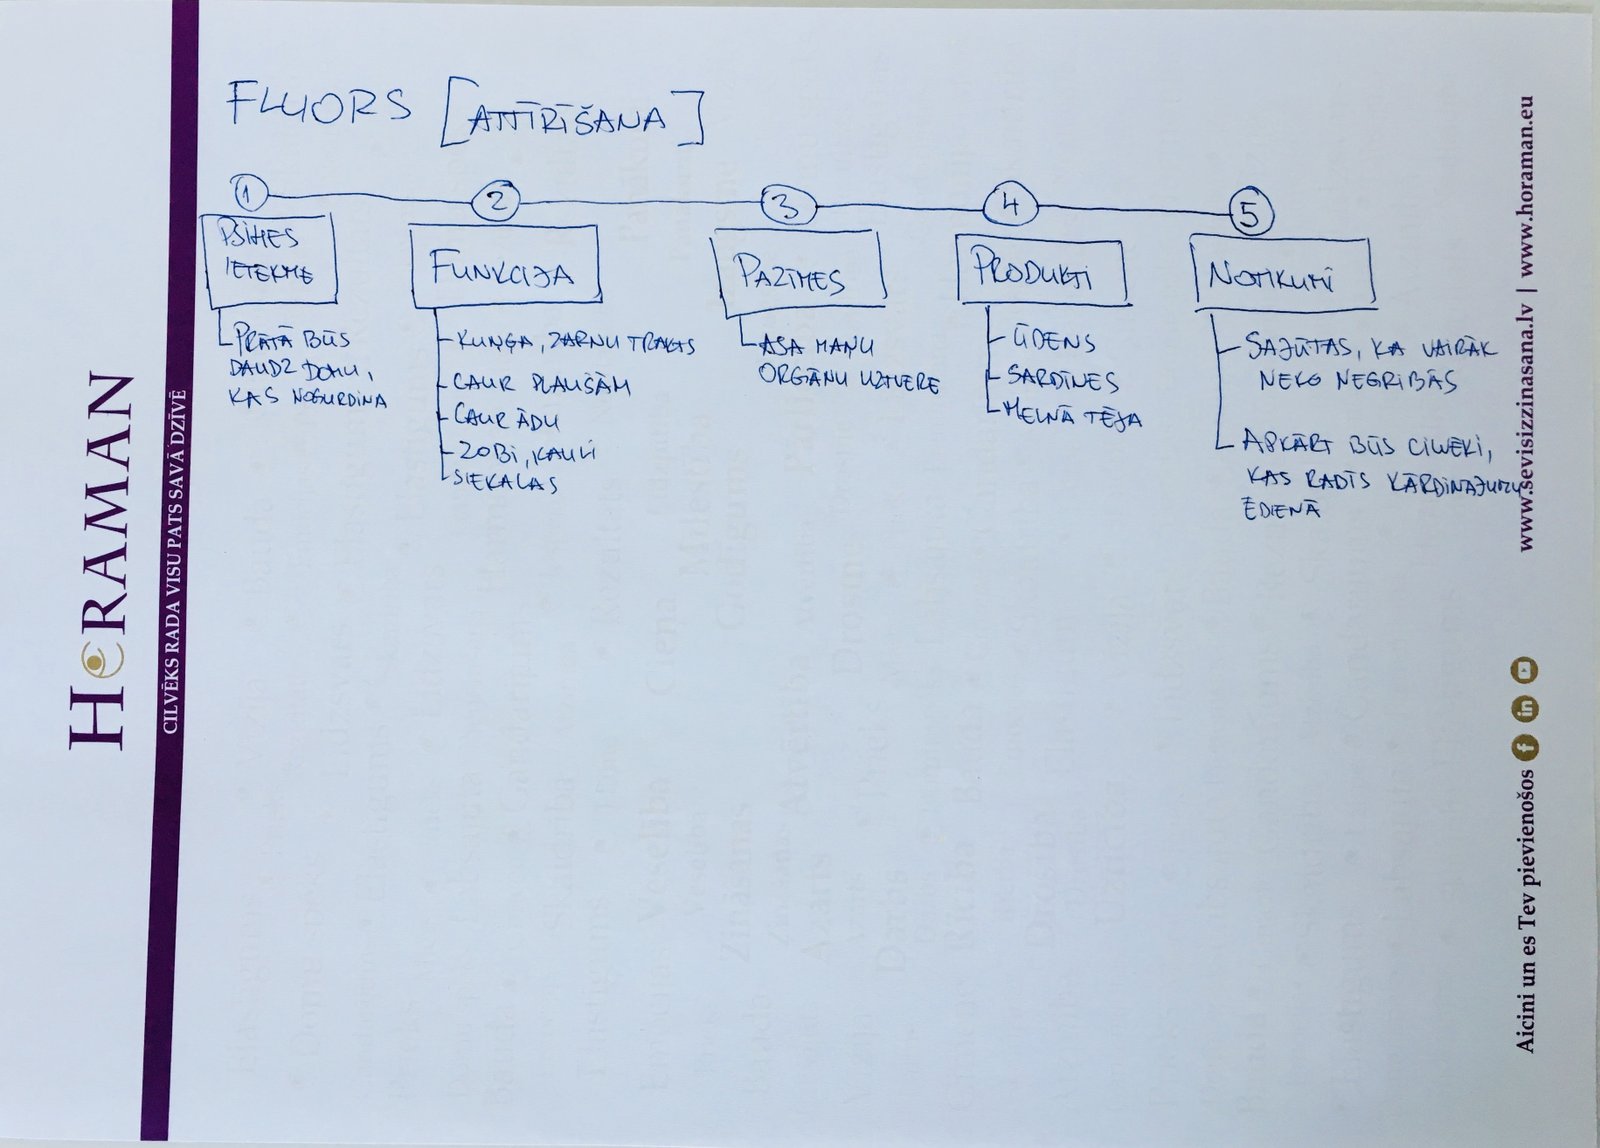 FLUORS [ATTĪRĪŠANA]
1
PSIHES
IETEKME
PRĀTĀ BŪS
DAUDZ DOMU,
KAS NOGURDINA
2
FUNKCIJA
KUŅĢA, ZARNU TRAKTS
CAUR PLAUŠĀM
CAUR ĀDU
ZOBI, KAULI
SIEKALAS
3
PAZĪMES
ASA MAŅU
ORGĀNU UZTVERE
4
PRODUKTI
ŪDENS
SARDĪNES
MELNĀ TĒJA
5
NOTIKUMI
SAJŪTAS, KA VAIRĀK
NEKO NEGRIBĀS
APKĀRT BŪS CILVĒKI,
KAS RADĪS KĀRDINĀJUMU
ĒDIENĀ
HORAMAN
CILVĒKS RADA VISU PATS SAVĀ DZĪVĒ
www.sevisizzinasana.lv | www.horaman.eu
Aicini un es Tev pievienošos